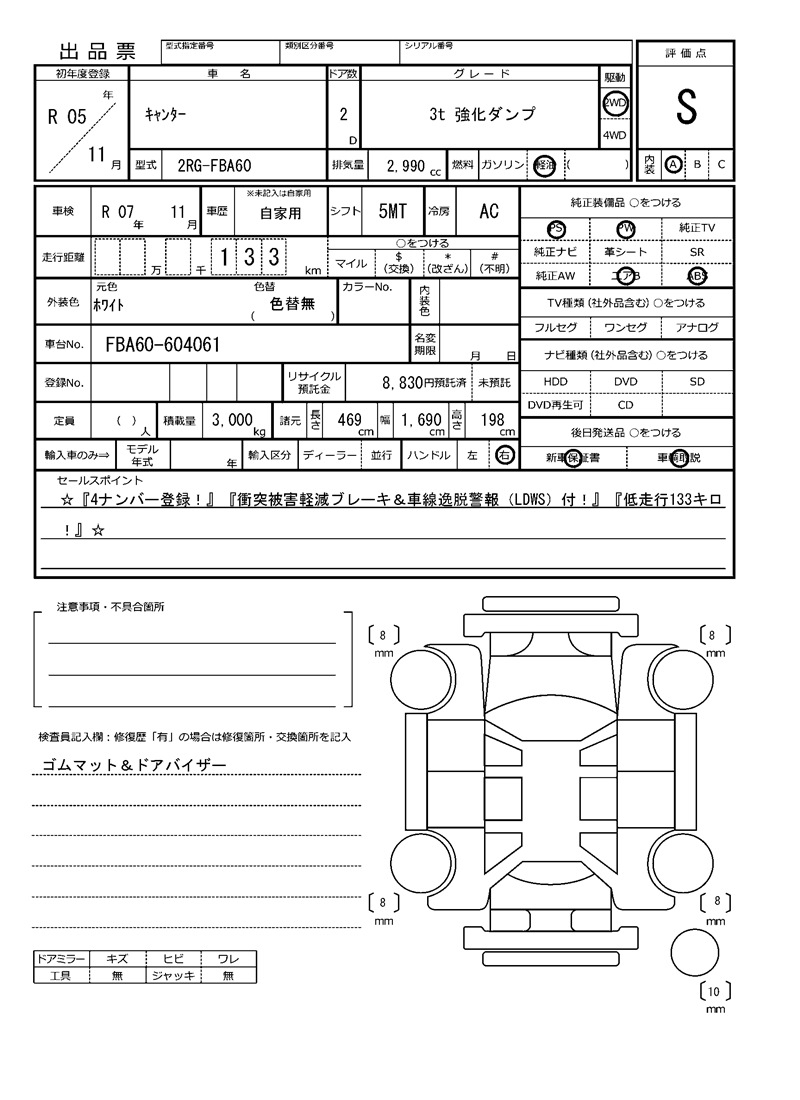 出品票 型式指定番号 類別区分番号 シリアル番号 評価点
初年度登録 車名 ドア数 グレード 駆動
R 05 年 11 月 キャンター 2 D 3t 強化ダンプ 2WD 4WD S
型式 2RG-FBA60 排気量 2,990 cc 燃料 ガソリン 軽油 ( ) 内装 A B C
車検 R 07 年 11 月 車歴 ※未記入は自家用 自家用 シフト 5MT 冷房 AC 純正装備品 ○をつける
PS PW 純正TV
走行距離 万 千 1 3 3 km ○をつける
マイル $ (交換) * (改ざん) # (不明)
純正ナビ 革シート SR
純正AW エアB ABS
外装色 元色 ホワイト 色替 ( 色替無 ) カラーNo. 内装色
TV種類 (社外品含む) ○をつける
フルセグ ワンセグ アナログ
車台No. FBA60-604061 名変期限 月 日
ナビ種類 (社外品含む) ○をつける
登録No. リサイクル預託金 8,830円預託済 未預託
HDD DVD SD
DVD再生可 CD
定員 ( ) 人 積載量 3,000 kg 諸元 長さ 469 cm 幅 1,690 cm 高さ 198 cm
後日発送品 ○をつける
輸入車のみ⇒ モデル年式 年 輸入区分 ディーラー 並行 ハンドル 左 右
新車保証書 車輌取説
セールスポイント
☆『4ナンバー登録！』『衝突被害軽減ブレーキ＆車線逸脱警報（LDWS）付！』『低走行133キロ
！』☆
注意事項・不具合箇所
〔 8 〕 mm 〔 8 〕 mm
検査員記入欄：修復歴「有」の場合は修復箇所・交換箇所を記入
ゴムマット＆ドアバイザー
〔 8 〕 mm 〔 8 〕 mm
ドアミラー キズ ヒビ ワレ
工具 無 ジャッキ 無
〔 10 〕 mm